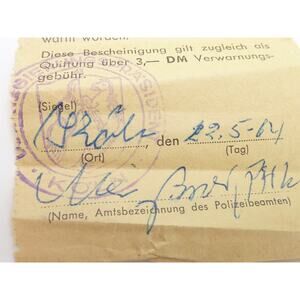 warnt worden.
Diese Bescheinigung gilt zugleich als
Quittung über 3,— DM Verwarnungs-
gebühr.
(Siegel)
Köln, den 22.5.64
(Ort) (Tag)
(Name, Amtsbezeichnung des Polizeibeamten)